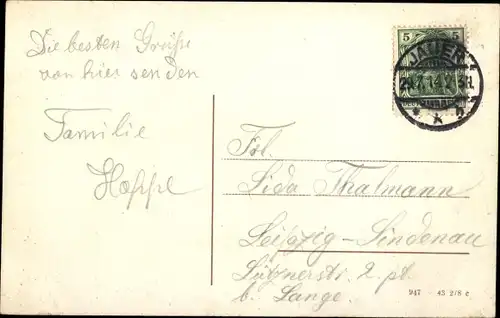 Die besten Grüße
von hier senden
Familie
Hoppe
5 5
JAUER
14
* *
Frl.
Lida Thalmann
Leipzig-Lindenau
Lütznerstr. 2 pt.
b. Lange.
947 - 43 2/8 c